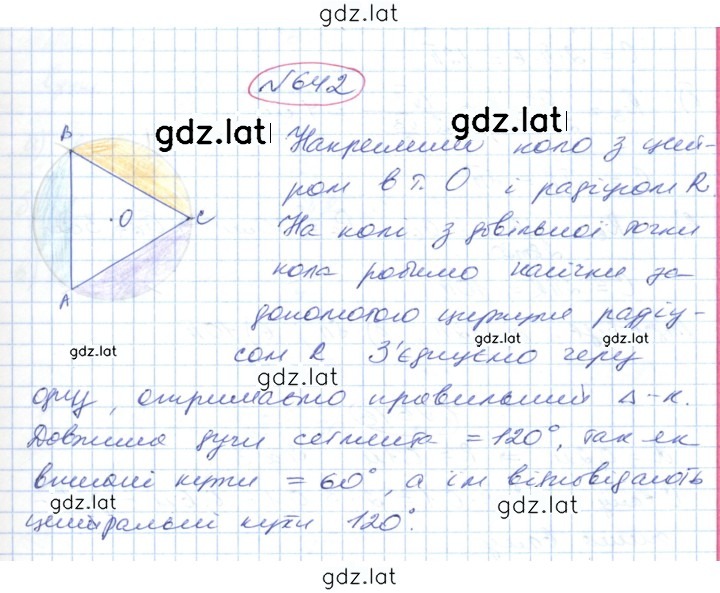 gdz.lat
№642
gdz.lat gdz.lat
B
Накреслили коло з цент-
ром в т. O і радіусом R.
O C
На колі з довільної точки
кола робимо насічки за
A
допомогою циркуля радіу-
gdz.lat gdz.lat
сом R З'єднуємо через
gdz.lat
одну, отримаємо правильний Δ-к.
Довжина дуги сегмента = 120°, так як
вписані кути = 60°, а їм відповідають
gdz.lat gdz.lat
центральні кути 120°.
gdz.lat